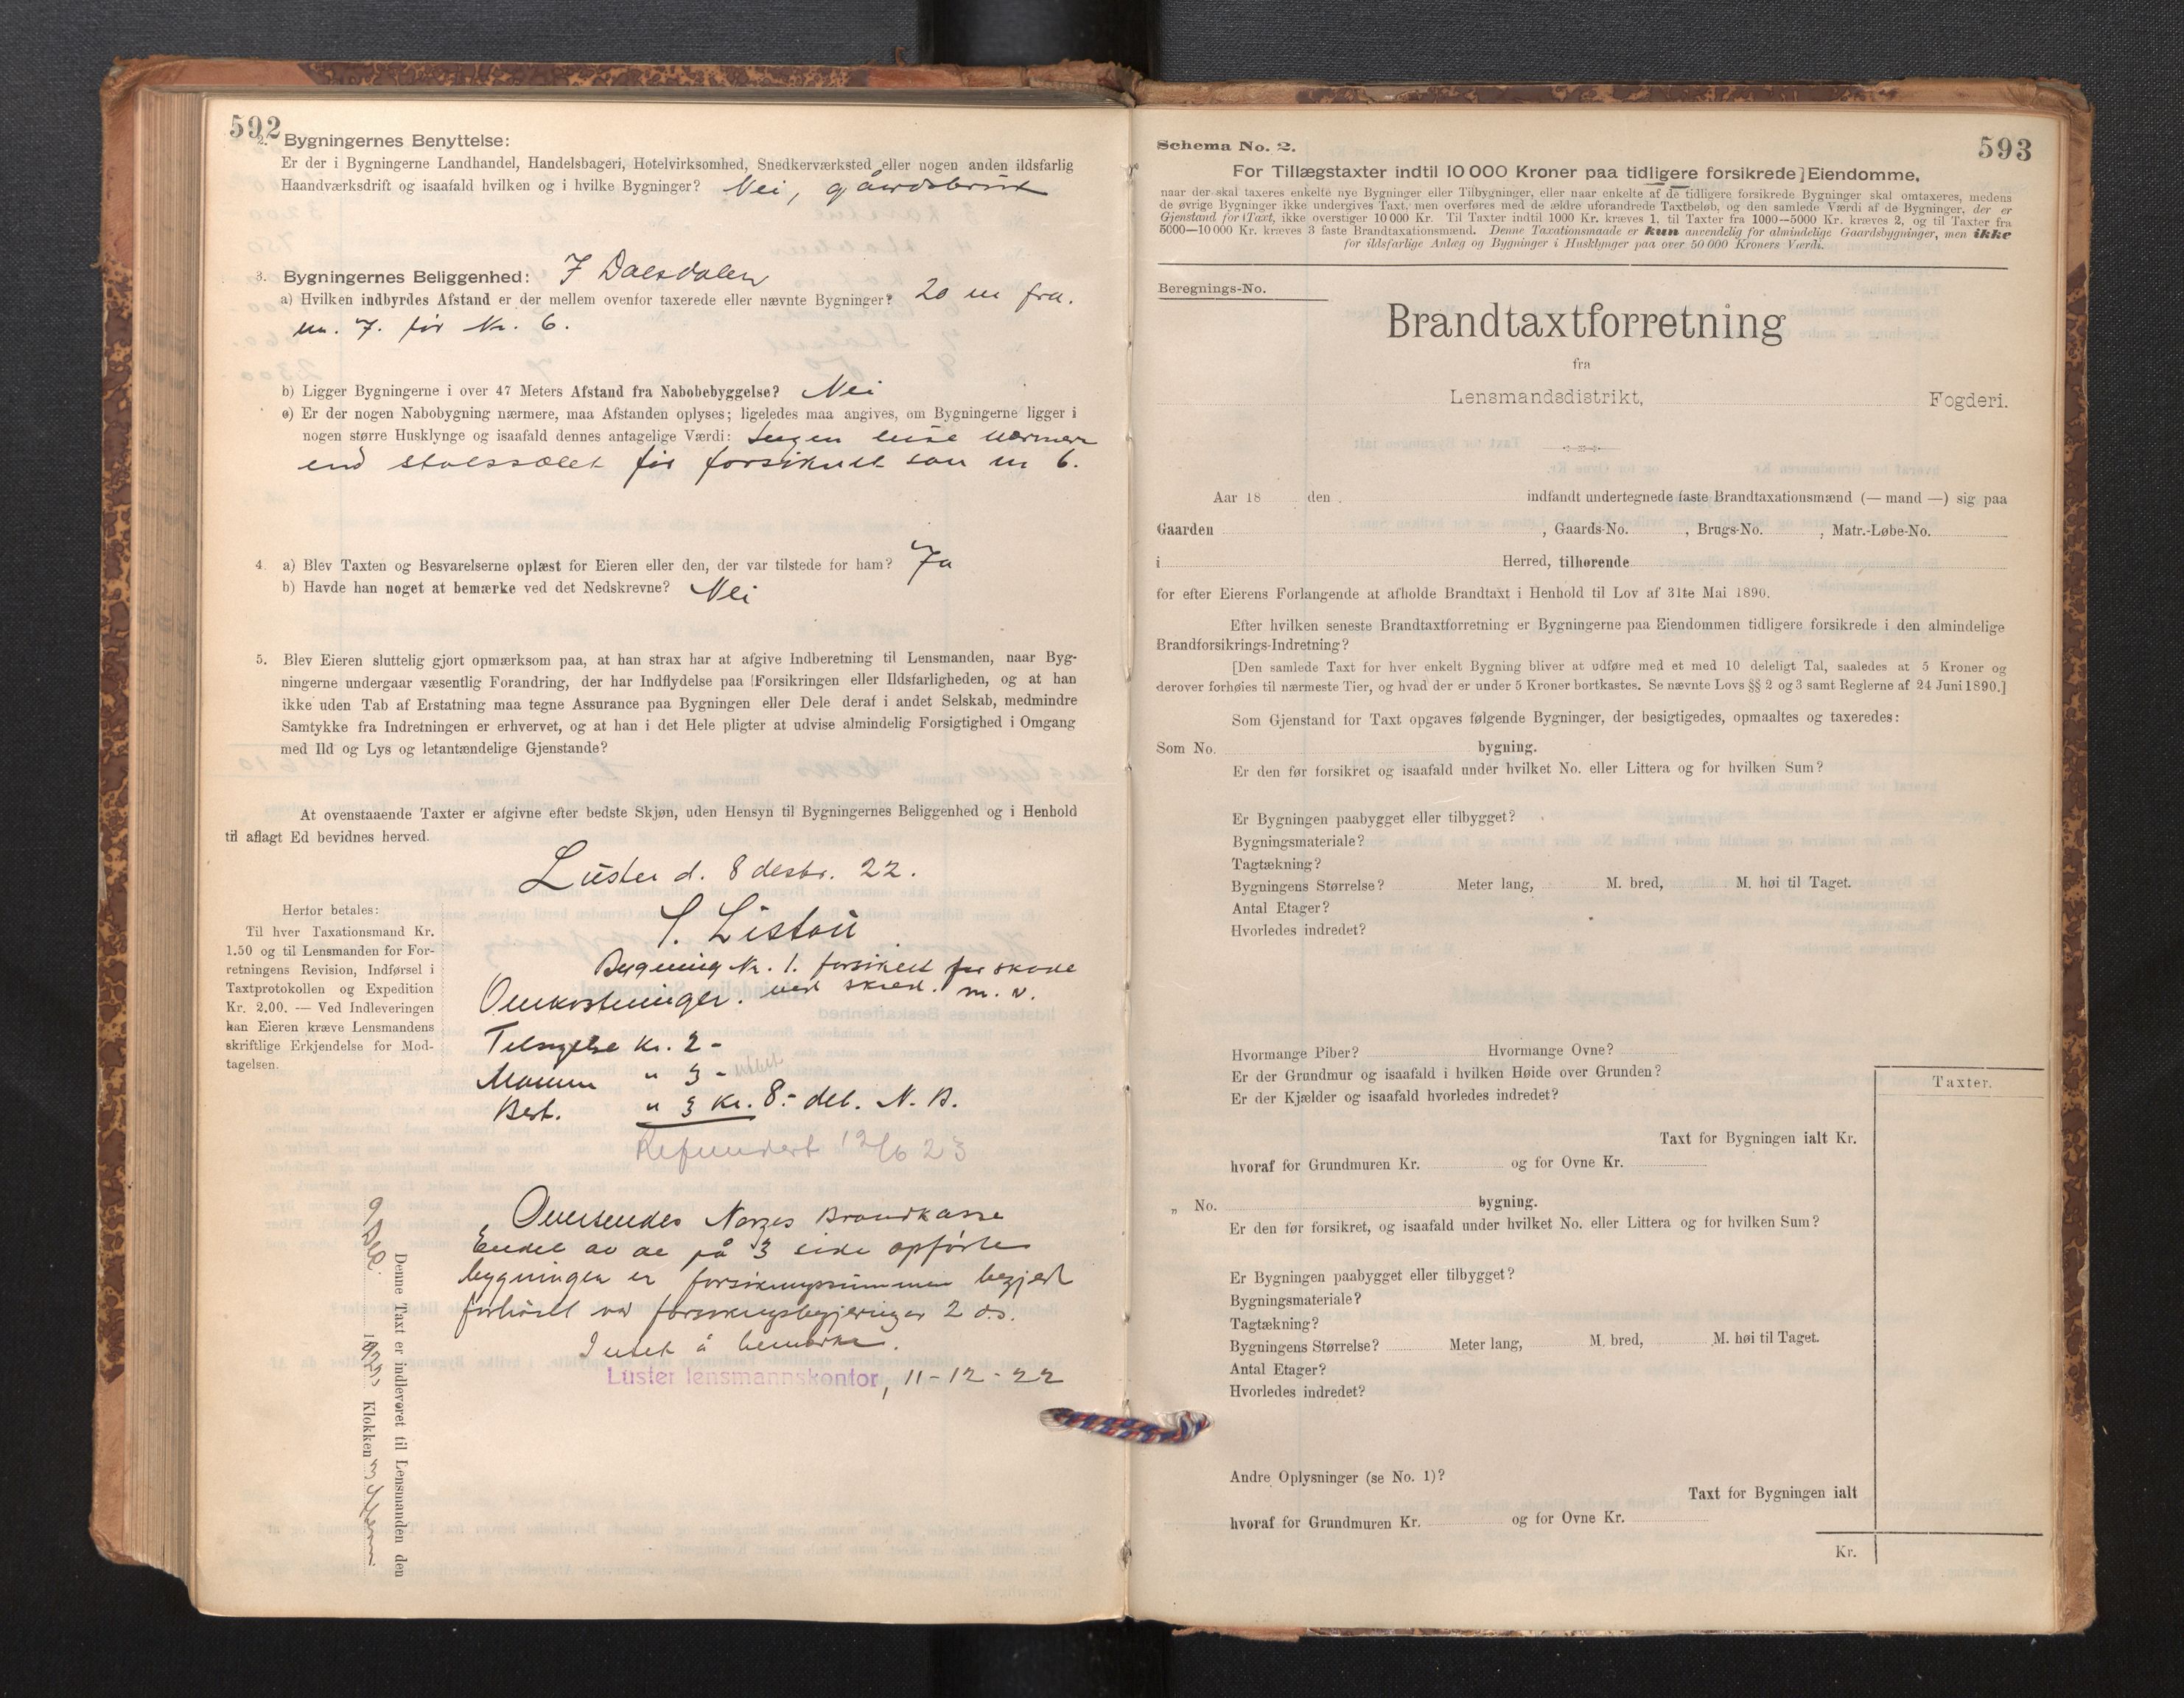 592
2. Bygningernes Benyttelse:
Er der i Bygningerne Landhandel, Handelsbageri, Hotelvirksomhed, Snedkerværksted eller nogen anden ildsfarlig
Haandværksdrift og isaafald hvilken og i hvilke Bygninger? Nei, gårdsbruk
3. Bygningernes Beliggenhed: I Dalsdalen
a) Hvilken indbyrdes Afstand er der mellem ovenfor taxerede eller nævnte Bygninger? 20 m fra
nr. 7. før Nr. 6.
b) Ligger Bygningerne i over 47 Meters Afstand fra Nabobebyggelse? Nei
c) Er der nogen Nabobygning nærmere, maa Afstanden oplyses; ligeledes maa angives, om Bygningerne ligger i
nogen større Husklynge og isaafald dennes antagelige Værdi: Ingen nærmere
end stolssælet før forsikret som nr 6.
4. a) Blev Taxten og Besvarelserne oplæst for Eieren eller den, der var tilstede for ham? Ja
b) Havde han noget at bemærke ved det Nedskrevne? Nei
5. Blev Eieren sluttelig gjort opmærksom paa, at han strax har at afgive Indberetning til Lensmanden, naar Byg-
ningerne undergaar væsentlig Forandring, der har Indflydelse paa Forsikringen eller Ildsfarligheden, og at han
ikke uden Tab af Erstatning maa tegne Assurance paa Bygningen eller Dele deraf i andet Selskab, medmindre
Samtykke fra Indretningen er erhvervet, og at han i det Hele pligter at udvise almindelig Forsigtighed i Omgang
med Ild og Lys og letantændelige Gjenstande?
At ovenstaaende Taxter er afgivne efter bedste Skjøn, uden Hensyn til Bygningernes Beliggenhed og i Henhold
til aflagt Ed bevidnes herved.
Luster d. 8 desbr. 22.
Herfor betales:
Til hver Taxationsmand Kr.
1.50 og til Lensmanden for For-
retningens Revision, Indførsel i
Taxtprotokollen og Expedition
Kr. 2.00. — Ved Indleveringen
kan Eieren kræve Lensmandens
skriftlige Erkjendelse for Mod-
tagelsen.
Bygning Nr. 1. forsikret for skade
ved skred. m. v.
Omkostninger.
Tilsigelse Kr. 2 -
" 3 -
" 3 Kr. 8.- N. B.
Refundert 12/6 23
Oversendes Norges Brandkasse
Endel av de på 3 side opførte
bygninger er forsikringssummen begjært
forhøiet ved forsikringsbegjæringer 2 ds.
Intet å bemerke.
Luster lensmannskontor, 11-12-22
Denne Taxt er indleveret til Lensmanden den
9 Des. 1922 Klokken 3 1/2 em.
593
Schema No. 2.
For Tillægstaxter indtil 10 000 Kroner paa tidligere forsikrede] Eiendomme,
naar der skal taxeres enkelte nye Bygninger eller Tilbygninger, eller naar enkelte af de tidligere forsikrede Bygninger skal omtaxeres, medens
de øvrige Bygninger ikke undergives Taxt, men overføres med de ældre uforandrede Taxtbeløb, og den samlede Værdi af de Bygninger, der er
Gjenstand for Taxt, ikke overstiger 10 000 Kr. Til Taxter indtil 1000 Kr. kræves 1, til Taxter fra 1000—5000 Kr. kræves 2, og til Taxter fra
5000—10 000 Kr. kræves 3 faste Brandtaxationsmænd. Denne Taxationsmaade er kun anvendelig for almindelige Gaardsbygninger, men ikke
for ildsfarlige Anlæg og Bygninger i Husklynger paa over 50 000 Kroners Værdi.
Beregnings-No.
Brandtaxtforretning
fra
Lensmandsdistrikt, Fogderi.
Aar 18 den indfandt undertegnede faste Brandtaxationsmænd (— mand —) sig paa
Gaarden , Gaards-No. , Brugs-No. , Matr.-Løbe-No.
i Herred, tilhørende
for efter Eierens Forlangende at afholde Brandtaxt i Henhold til Lov af 31te Mai 1890.
Efter hvilken seneste Brandtaxtforretning er Bygningerne paa Eiendommen tidligere forsikrede i den almindelige
Brandforsikrings-Indretning?
[Den samlede Taxt for hver enkelt Bygning bliver at udføre med et med 10 deleligt Tal, saaledes at 5 Kroner og
derover forhøies til nærmeste Tier, og hvad der er under 5 Kroner bortkastes. Se nævnte Lovs §§ 2 og 3 samt Reglerne af 24 Juni 1890.]
Som Gjenstand for Taxt opgaves følgende Bygninger, der besigtigedes, opmaaltes og taxeredes:
Som No. bygning.
Er den før forsikret og isaafald under hvilket No. eller Littera og for hvilken Sum?
Er Bygningen paabygget eller tilbygget?
Bygningsmateriale?
Tagtækning?
Bygningens Størrelse? Meter lang, M. bred, M. høi til Taget.
Antal Etager?
Hvorledes indredet?
Hvormange Piber? Hvormange Ovne?
Er der Grundmur og isaafald i hvilken Høide over Grunden?
Er der Kjælder og isaafald hvorledes indredet?
Taxter.
Taxt for Bygningen ialt Kr.
hvoraf for Grundmuren Kr. og for Ovne Kr.
„ No. bygning.
Er den før forsikret, og isaafald under hvilket No. eller Littera og for hvilken Sum?
Er Bygningen paabygget eller tilbygget?
Bygningsmateriale?
Tagtækning?
Bygningens Størrelse? Meter lang, M. bred, M. høi til Taget.
Antal Etager?
Hvorledes indredet?
Andre Oplysninger (se No. 1)?
Taxt for Bygningen ialt
hvoraf for Grundmuren Kr. og for Ovne Kr.
Kr.